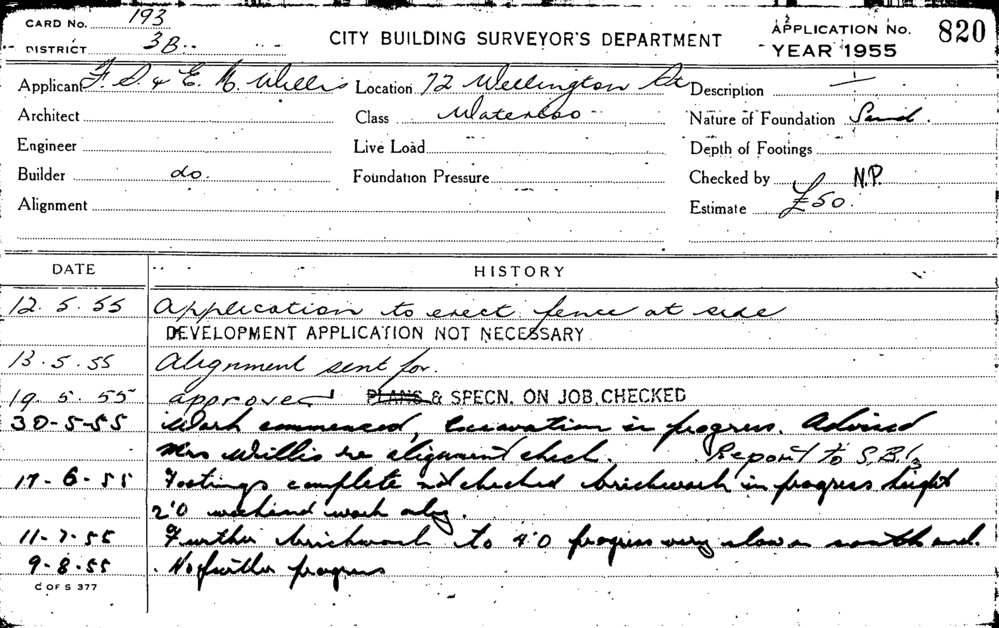 CARD No. 193
DISTRICT 3B.
CITY BUILDING SURVEYOR'S DEPARTMENT
APPLICATION No. 820
YEAR 1955
Applicant F. D. & E. M. Willis Location 72 Wellington St Description
Architect Class Waterloo Nature of Foundation Sand.
Engineer Live Load Depth of Footings
Builder do. Foundation Pressure Checked by N.P.
Alignment Estimate £50.
DATE HISTORY
12.5.55 Application to erect fence at side
DEVELOPMENT APPLICATION NOT NECESSARY
13.5.55 Alignment sent for.
19.5.55 approved PLANS & SPECN. ON JOB CHECKED
30-5-55 Work commenced, Excavation in progress. Advised
Mrs Willis re alignment check. Report to S.B.
17-6-55 Footings complete not checked brickwork in progress height
2'0 weekend work only.
11-7-55 Further brickwork to 4'0 progress very slow on south end.
9-8-55 No further progress
C OF S 377